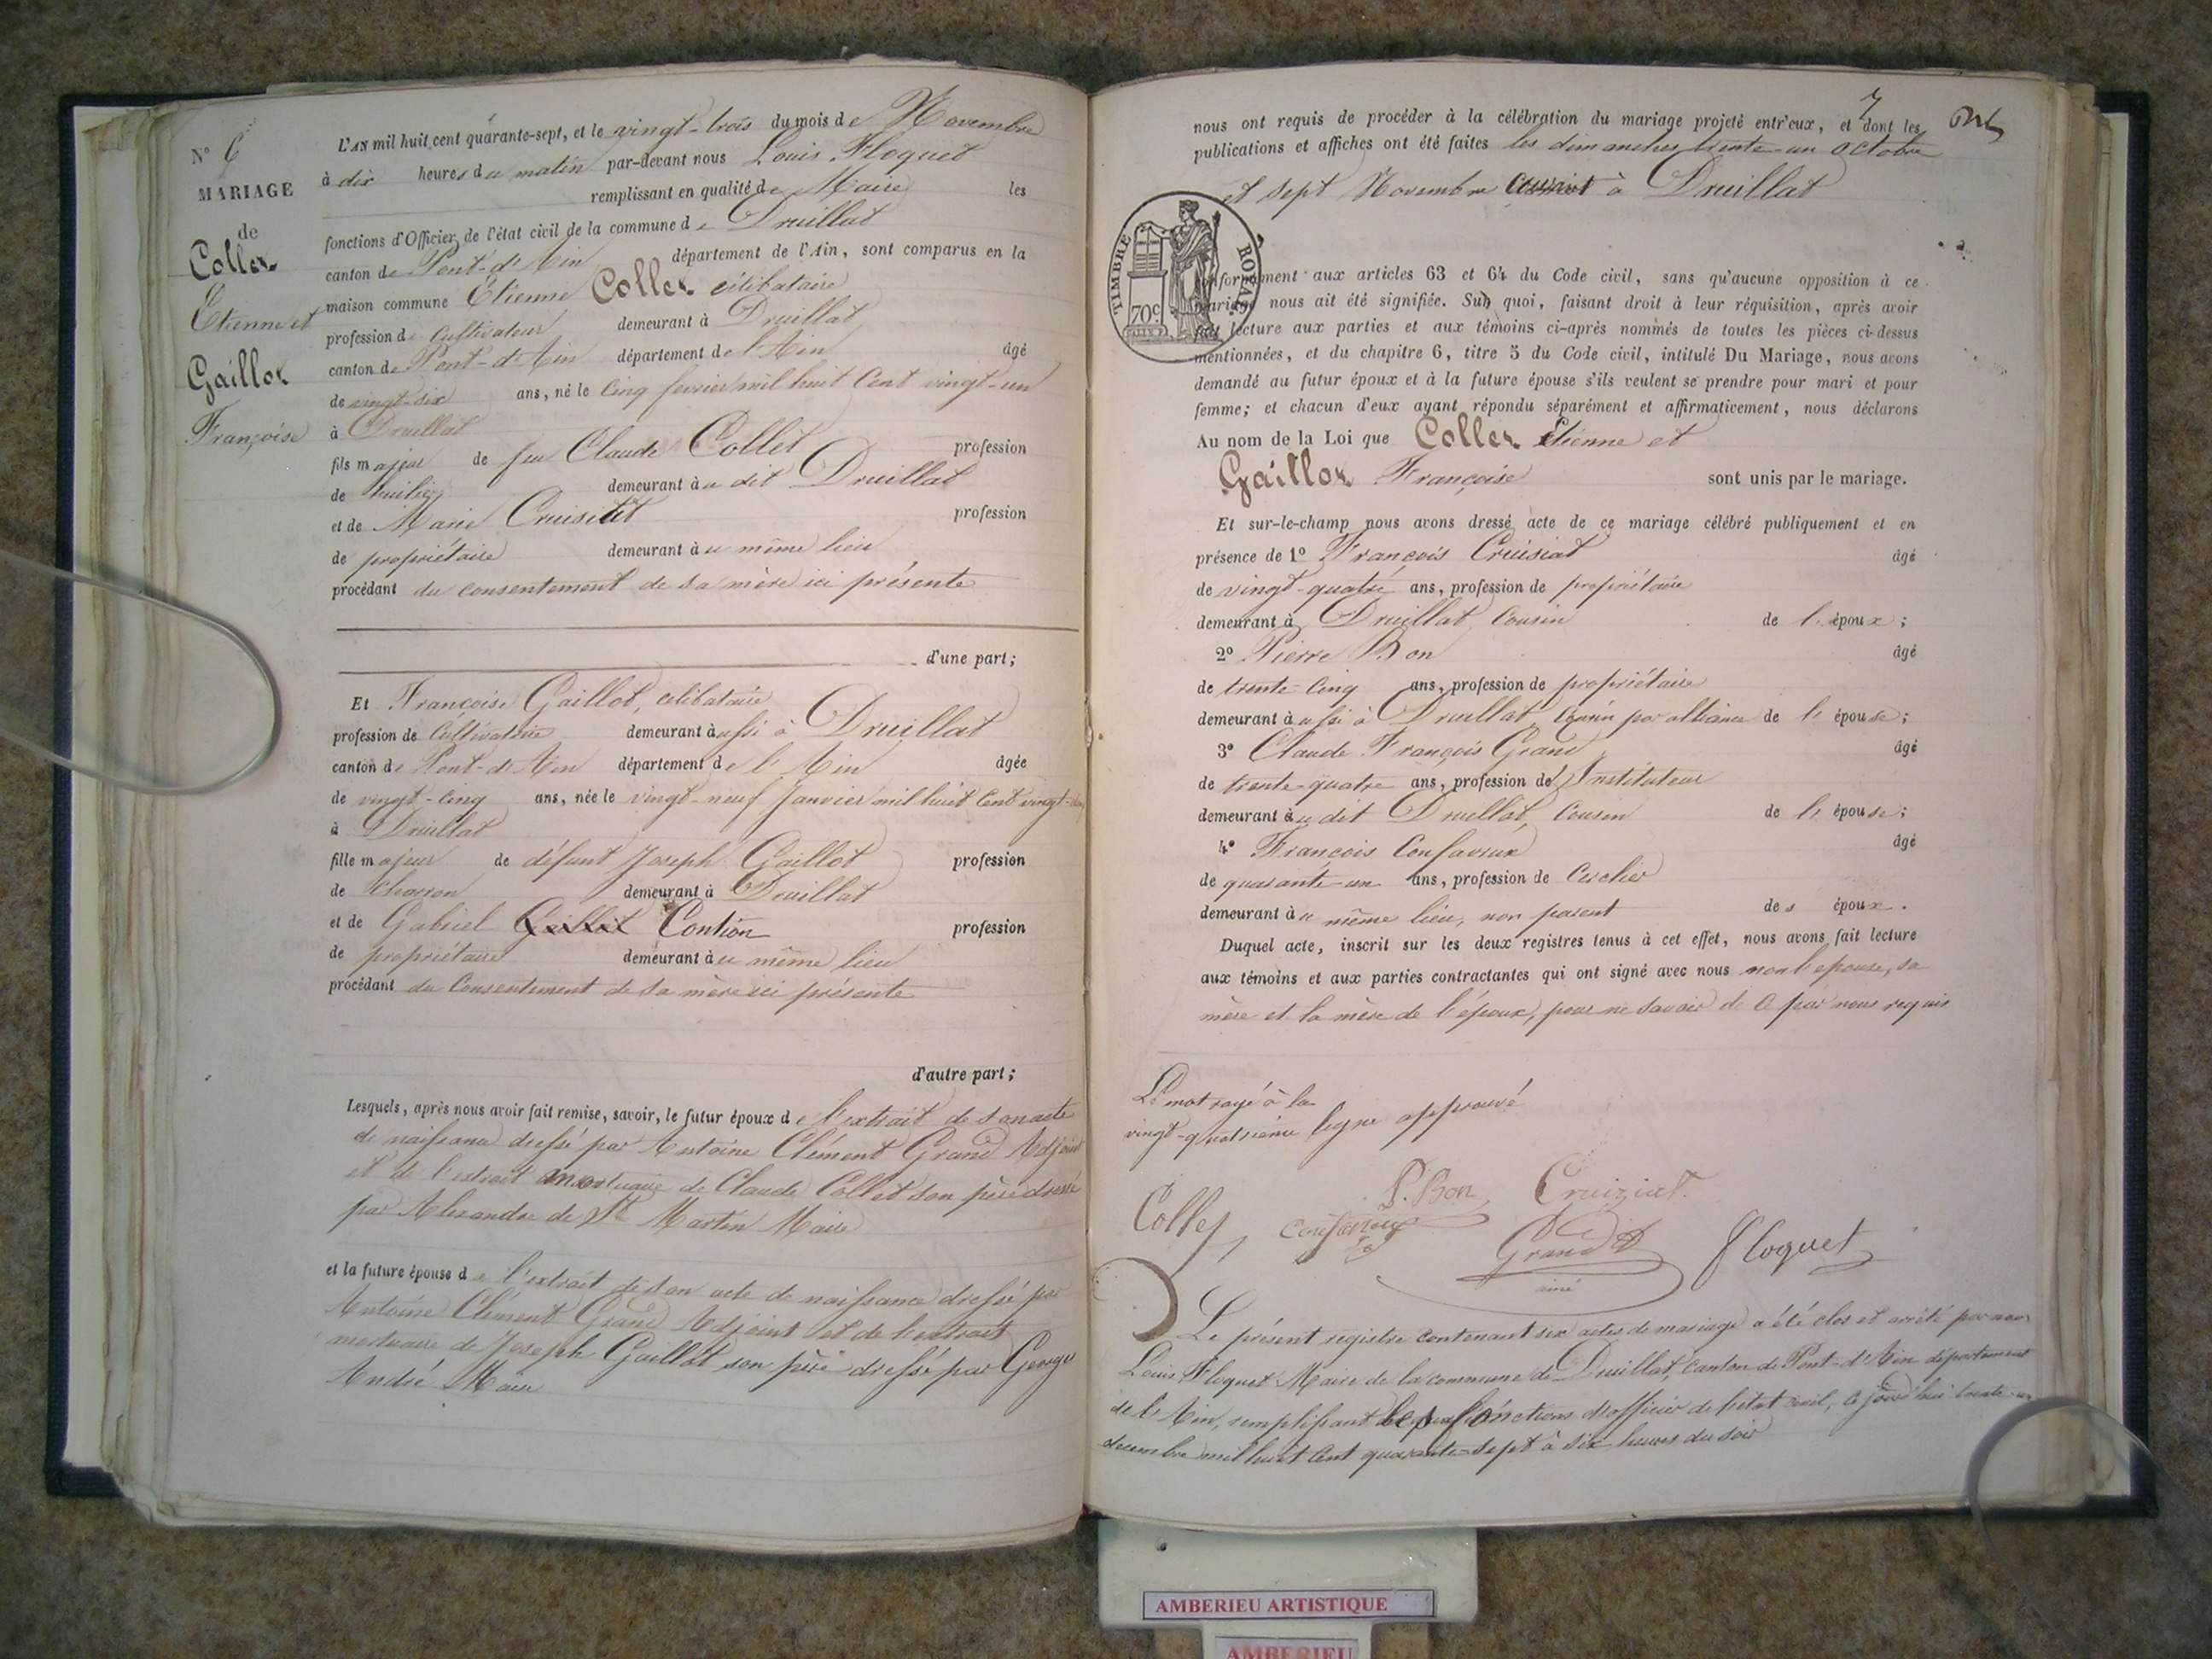 N° 6
MARIAGE
de
Collet
Etienne et
Gaillot
Françoise
L'AN mil huit cent quarante-sept, et le vingt-trois du mois de Novembre
à dix heures du matin par-devant nous Louis Floquet
remplissant en qualité de Maire les
fonctions d'Officier de l'état civil de la commune de Druillat
canton de Pont-d'Ain département de l'Ain, sont comparus en la
maison commune Étienne Collet célibataire
profession de Cultivateur demeurant à Druillat
canton de Pont-d'Ain département de l'Ain âgé
de vingt-six ans, né le Cinq fevrier mil huit Cent vingt-un
à Druillat
fils majeur de feu Claude Collet profession
de huilier demeurant au dit Druillat
et de Marie profession
de propriétaire demeurant au même lieu
procédant du consentement de sa mère ici présente
d'une part;
Et Françoise Gaillot, célibataire
profession de Cultivatrice demeurant aussi à Druillat
canton de Pont-d'Ain département de l'Ain âgée
de vingt-cinq ans, née le vingt-neuf Janvier mil huit Cent vingt-deux
à Druillat
fille majeur de défunt Joseph Gaillot profession
de Charron demeurant à Druillat
et de Gabriel Gaillot Contion profession
de propriétaire demeurant au même lieu
procédant du Consentement de sa mère ici présente
d'autre part;
Lesquels, après nous avoir fait remise, savoir, le futur époux de l'extrait de son acte
de naissance dressé par Antoine Clément Grand Adjoint
et de l'extrait mortuaire de Claude Collet son père dressé
par Alexandre de St Martin Maire
et la future épouse de l'extrait de son acte de naissance dressé par
Antoine Clément Grand Adjoint et de l'extrait
mortuaire de Joseph Gaillot son père dressé par George
André Maire
7
nous ont requis de procéder à la célébration du mariage projeté entr'eux, et dont les
publications et affiches ont été faites les dimanches trente-un octobre
et sept Novembre courant à Druillat
TIMBRE ROYAL
70c
conformément aux articles 63 et 64 du Code civil, sans qu'aucune opposition à ce
mariage nous ait été signifiée. Sur quoi, faisant droit à leur réquisition, après avoir
fait lecture aux parties et aux témoins ci-après nommés de toutes les pièces ci-dessus
mentionnées, et du chapitre 6, titre 5 du Code civil, intitulé Du Mariage, nous avons
demandé au futur époux et à la future épouse s'ils veulent se prendre pour mari et pour
femme; et chacun d'eux ayant répondu séparément et affirmativement, nous déclarons
Au nom de la Loi que Collet Etienne et
Gaillot Françoise sont unis par le mariage.
Et sur-le-champ nous avons dressé acte de ce mariage célébré publiquement et en
présence de 1° François Cruisiat âgé
de vingt-quatre ans, profession de propriétaire
demeurant à Druillat, Cousin de l'époux;
2° Pierre Bon âgé
de trente-Cinq ans, profession de propriétaire
demeurant aussi à Druillat, Cousin par alliance de l'épouse;
3° Claude François Grand âgé
de trente-quatre ans, profession de Instituteur
demeurant au dit Druillat, Cousin de l'épouse;
4° François Confavreux âgé
de quarante-un ans, profession de Cerclier
demeurant au même lieu, non parent des époux.
Duquel acte, inscrit sur les deux registres tenus à cet effet, nous avons fait lecture
aux témoins et aux parties contractantes qui ont signé avec nous non l'epouse, sa
mère et la mère de l'époux, pour ne savoir de ce par nous requis
Le mot rayé à la
vingt-quatrième ligne approuvé
P. Bon Cruiziat
Collet Confavreux
Grand Floquet
ainé
Le présent registre contenant six actes de mariage a été clos et arrêté par nous
Louis Floquet Maire de la commune de Druillat, Canton de Pont-d'Ain département
de l'Ain, remplissant les fonctions d'officier de l'état civil, ce jourd'hui trente-un
décembre mil huit Cent quarante-sept à six heures du soir
AMBERIEU ARTISTIQUE
AMBERIEU